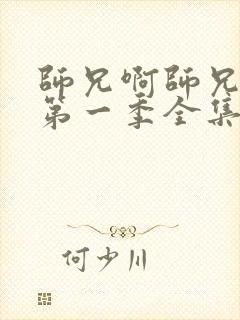 師兄啊師兄
第一季全集
何少川